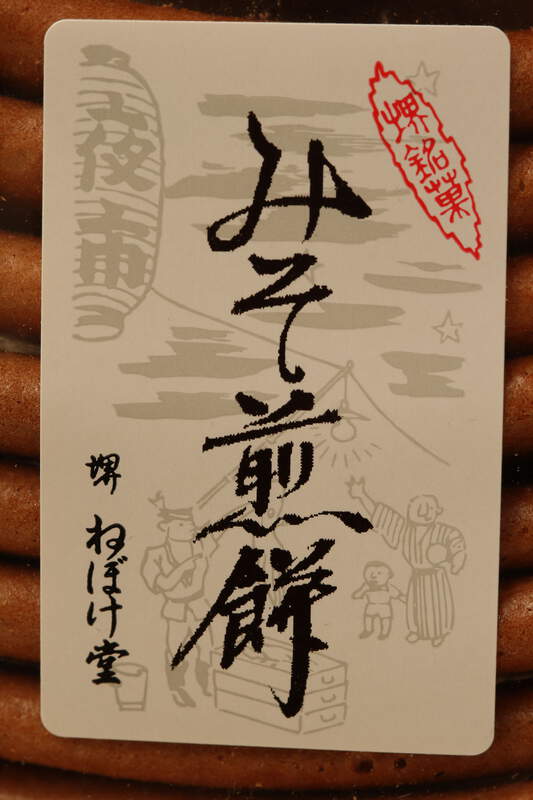 堺銘菓
みそ煎餅
堺 ねぼけ堂